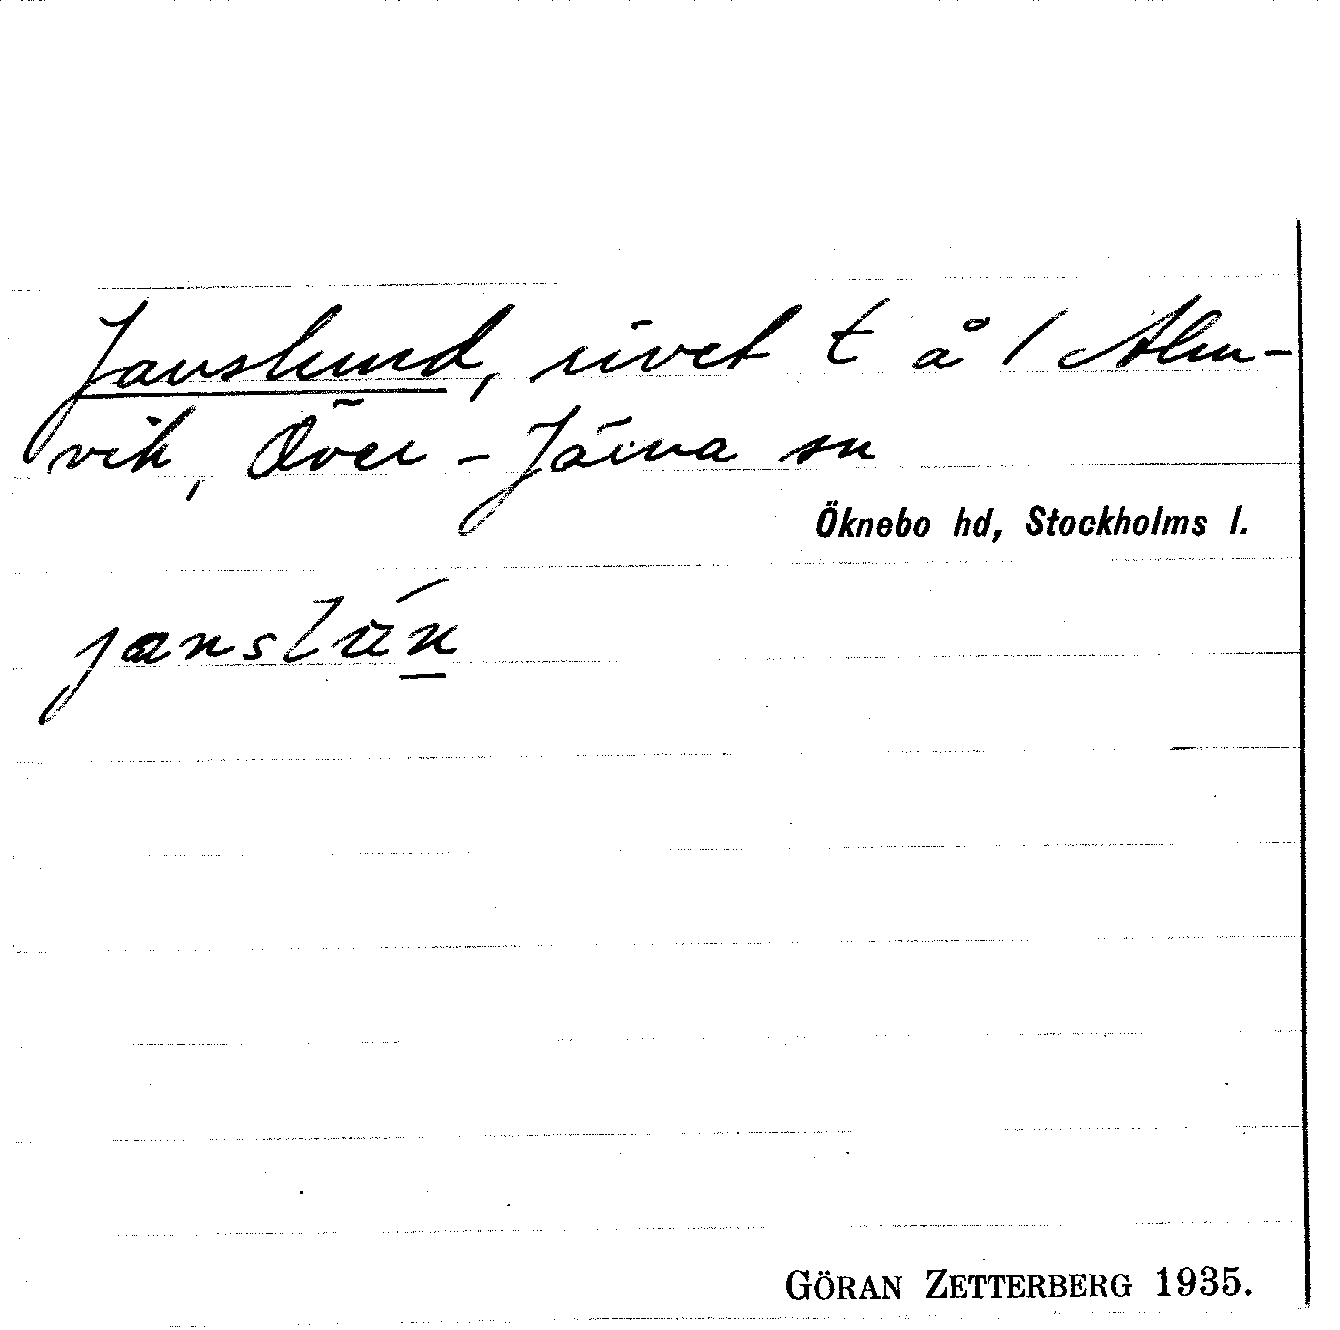 Janslund, rivet t å / Alm-
vik, Över-Järna sn
Öknebo hd, Stockholms l.
janslún
GÖRAN ZETTERBERG 1935.